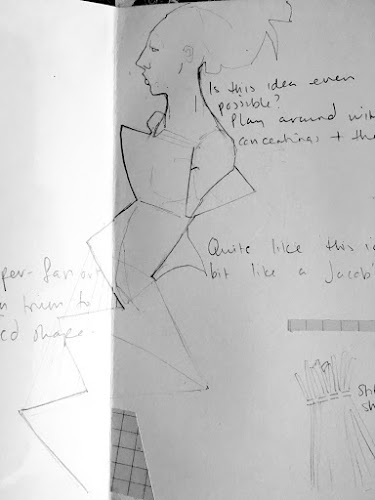 Is this idea even
possible?
Play around with
concertinas + the
Quite like this id
bit like a Jacob'
per-fan out
n trim to
ed shape.
St
sh